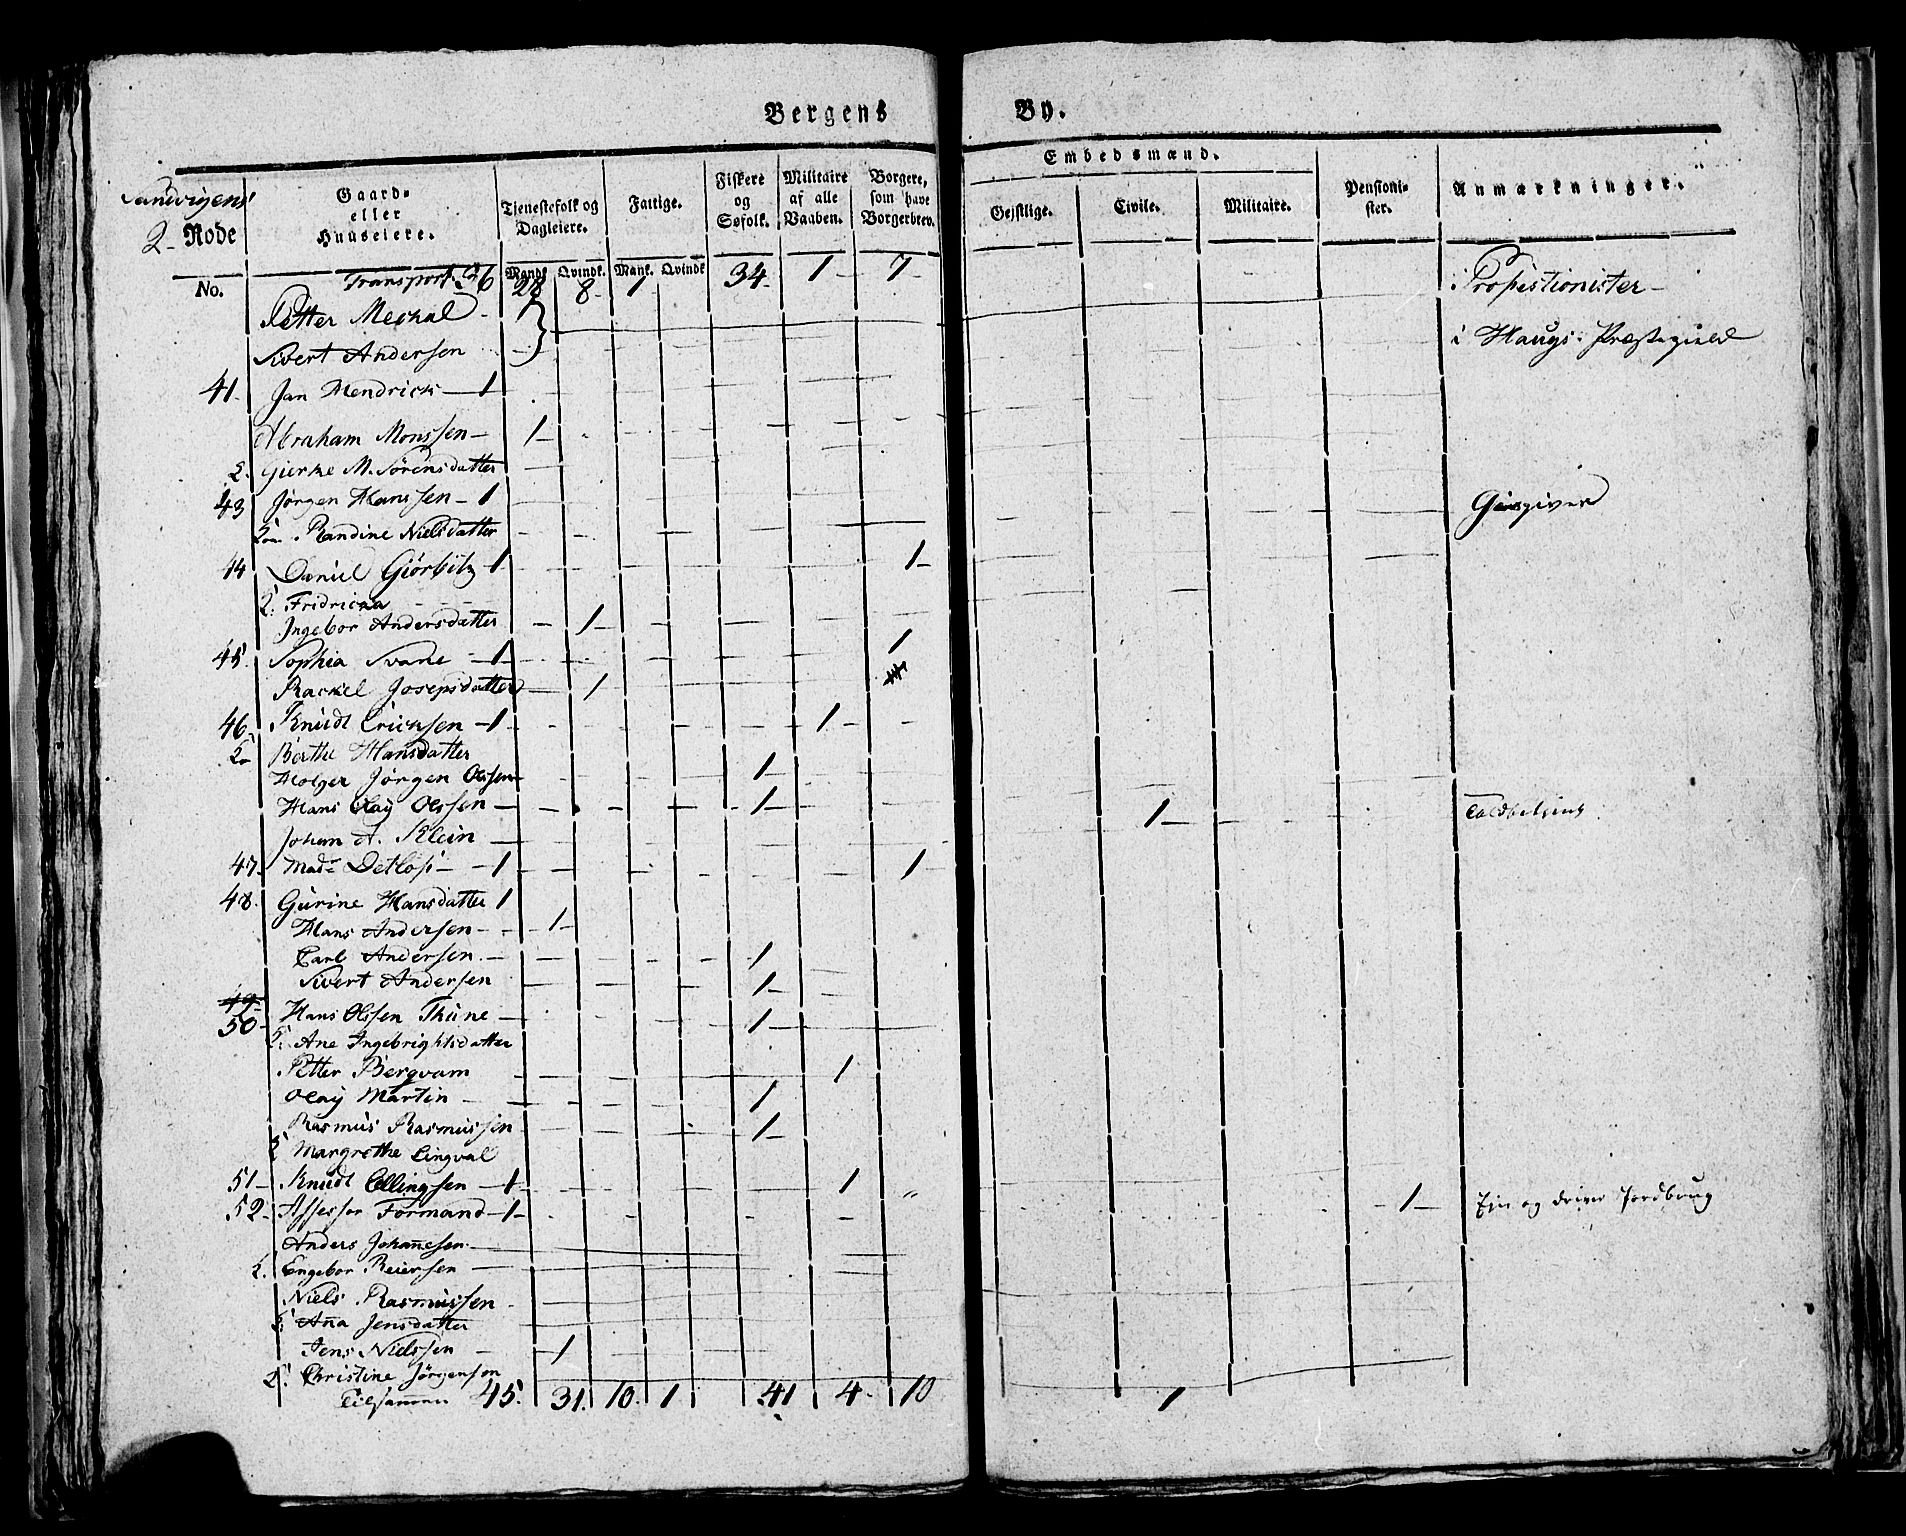 Bergens By.
Sandvigens
2- Rode
No.
Gaard- eller Huuseiere.
Tjenestefolk og Dagleiere.
Mandk. Qvindk.
Fattige.
Mank. Qvindk
Fiskere og Søfolk.
Militaire af alle Vaaben.
Borgere, som have Borgerbrev.
Embedsmænd.
Gejstlige. Civile. Militaire.
Pensionister.
Anmærkninger.
Transport 36 28 8- 1 34- 1- 7-
Petter Meckal - 1
Sivert Andersen
i Haugs Præstegield
41- Jan Hendrick - 1
Abraham Monssen - 1-
Gierke M. Sørensdatter
43 Jørgen Hanssen - 1
Randine Nielsdatter
44 Daniel Giørbitz - 1 1-
Fridricka
Ingebor Andersdatter - 1-
45. Sophia Svane - 1- 1
Rackel Josepsdatter - 1
46- Knudt Ericksen - 1- 1-
Berthe Hansdatter
Holger Jørgen Olssen 1-
Hans Olay Olssen - 1- 1-
Johan A. Klein
47- Madᵉ Detlof - 1 1-
48- Gurine Hansdatter 1
Hans Andersen - 1-
Carl Andersen - 1-
Sivert Andersen 1-
49-
50- Hans Olssen Thune - 1-
Ane Ingebrightsdatter
Petter Bergvam 1
Olay Martin - 1
Rasmus Rasmussen 1-
Margrethe Lingval
51- Knudt Ellingsen - 1- 1
52- Assessor Formand - 1- 1- Eier og driver Jordbrug
Anders Johanesen
Engebor Reiersen
Niels Rasmussen -
Ana Jensdatter
Jens Nielssen - 1
Christine Jørgenson
Tilsammen 45. 31. 10. 1 41 4- 10 1